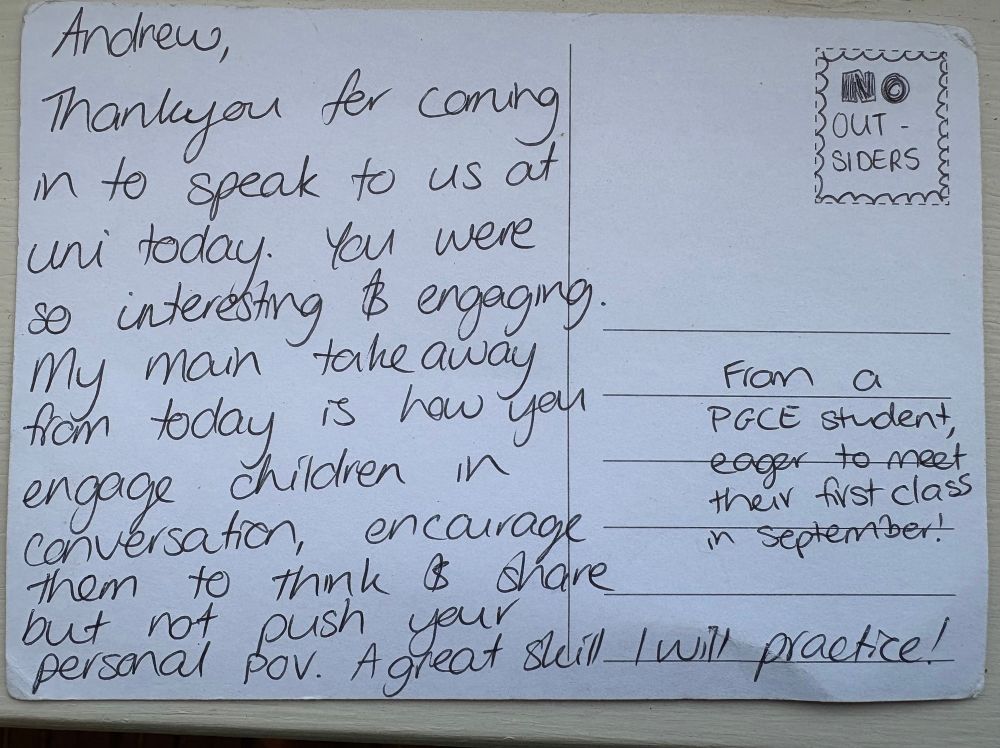 Andrew,
Thankyou for coming
in to speak to us at
uni today. You were
so interesting & engaging.
My main take away
from today is how you
engage children in
conversation, encourage
them to think & share
but not push your
personal pov. A great skill I will practice!
NO
OUT -
SIDERS
From a
PGCE student,
eager to meet
their first class
in september!